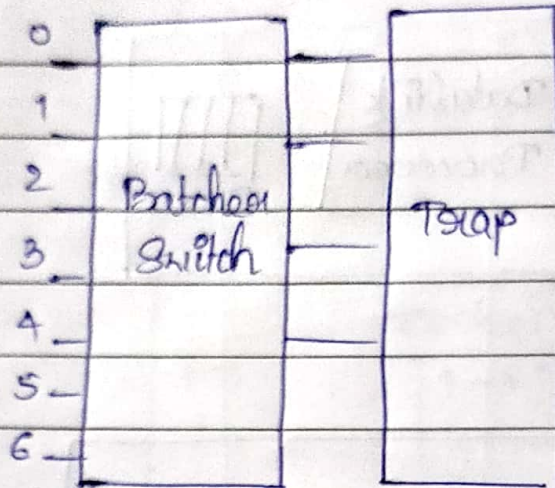 0
1
2
3
4
5
6
Batcher
Switch
Trap